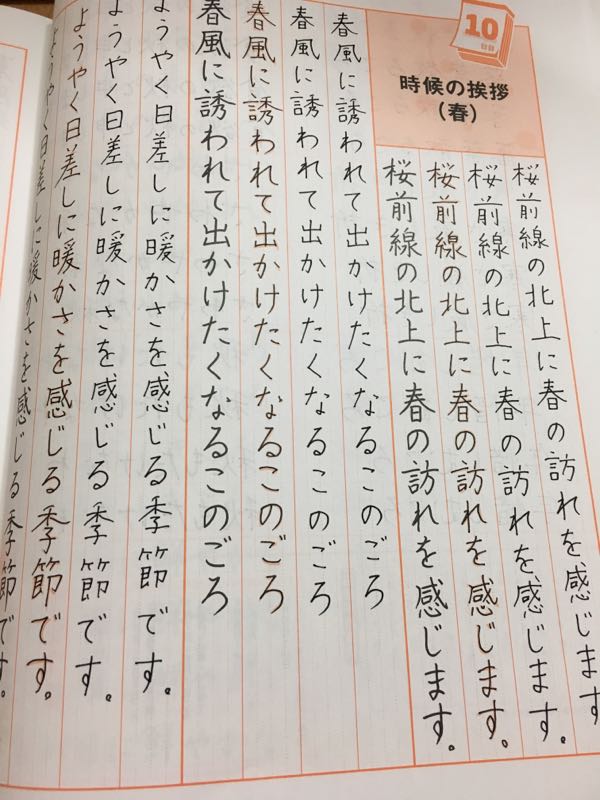 10
日目
時候の挨拶
(春)
桜前線の北上に春の訪れを感じます。
桜前線の北上に春の訪れを感じます。
桜前線の北上に春の訪れを感じます。
桜前線の北上に春の訪れを感じます。
春風に誘われて出かけたくなるこのごろ
春風に誘われて出かけたくなるこのごろ
春風に誘われて出かけたくなるこのごろ
春風に誘われて出かけたくなるこのごろ
ようやく日差しに暖かさを感じる季節です。
ようやく日差しに暖かさを感じる季節です。
ようやく日差しに暖かさを感じる季節です。
ようやく日差しに暖かさを感じる季節です。